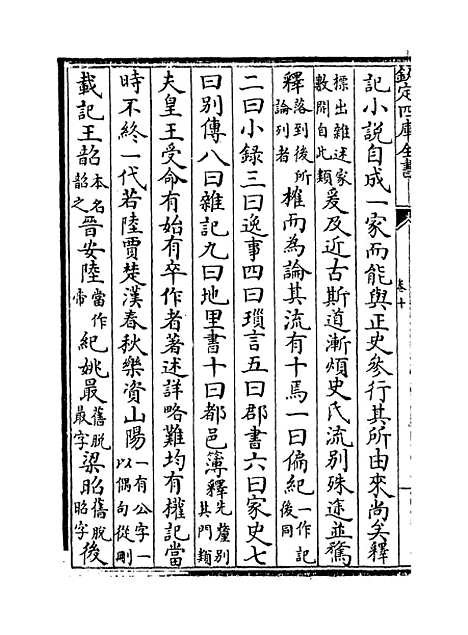 欽定四庫全書
卷十
記小說自成一家而能與正史參行其所由來尚矣釋
標出雜述家數開自此類爰及近古斯道漸煩史氏流别殊途並騖
釋落到後所論列者榷而為論其流有十焉一曰偏紀一作記後同
二曰小録三曰逸事四曰瑣言五曰郡書六曰家史七
曰别傳八曰雜記九曰地里書十曰都邑簿釋先釐别其門類
夫皇王受命有始有卒作者著述詳略難均有權記當
時不終一代若陸賈楚漢春秋樂資山陽一有公字一以偶句從刪
載記王韶本名韶之晉安陸當作帝紀姚最舊脱最字梁昭舊脱昭字後